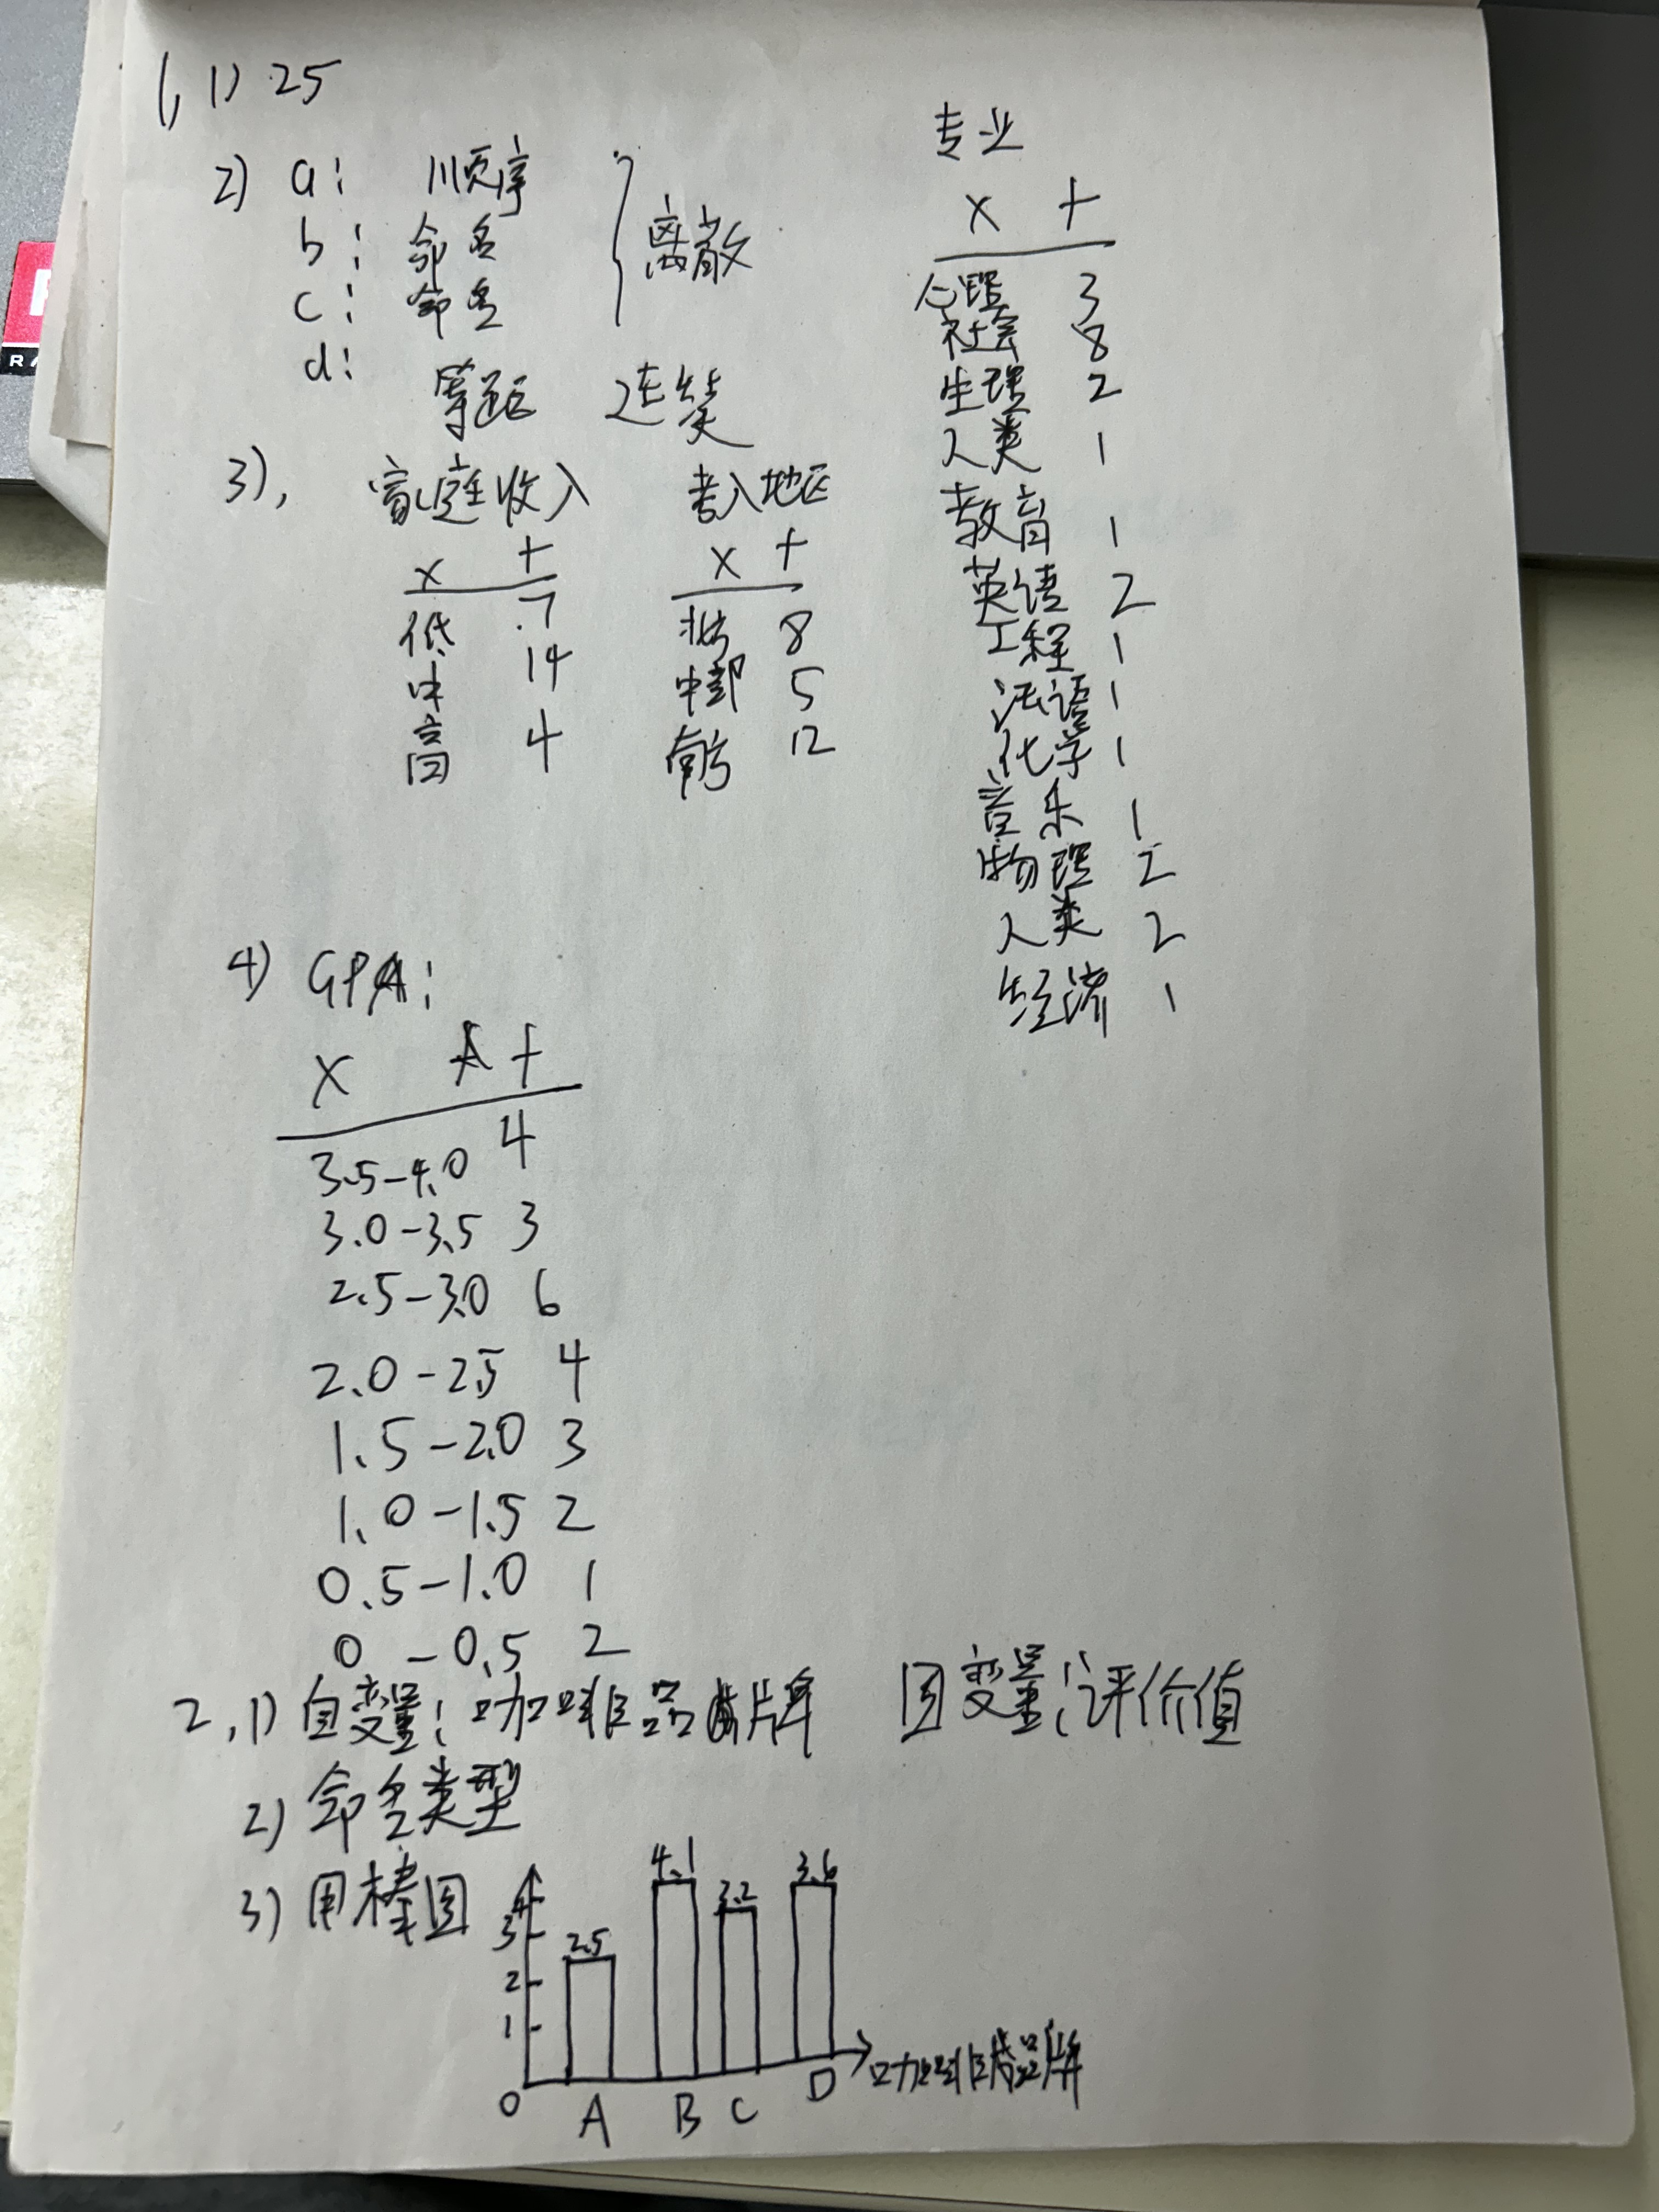 1, 1) 25
2) a: 顺序
b: 命名
c: 命名
离散
d: 等距 连续
3), 家庭收入
x f
低 7
中 14
高 4
考入地区
x f
北方 8
中部 5
南方 12
专业
x f
心理 3
社会 8
生理 2
人类 1
教育 1
英语 2
工程 1
法语 1
化学 1
音乐 1
物理 2
人类 2
经济 1
4) GPA:
x f
3.5-4.0 4
3.0-3.5 3
2.5-3.0 6
2.0-2.5 4
1.5-2.0 3
1.0-1.5 2
0.5-1.0 1
0-0.5 2
2, 1) 自变量: 咖啡品牌 因变量: 评价值
2) 命名类型
3) 用棒图
4
3
2
1
0
2.5
4.1
3.2
3.6
A B C D 咖啡品牌